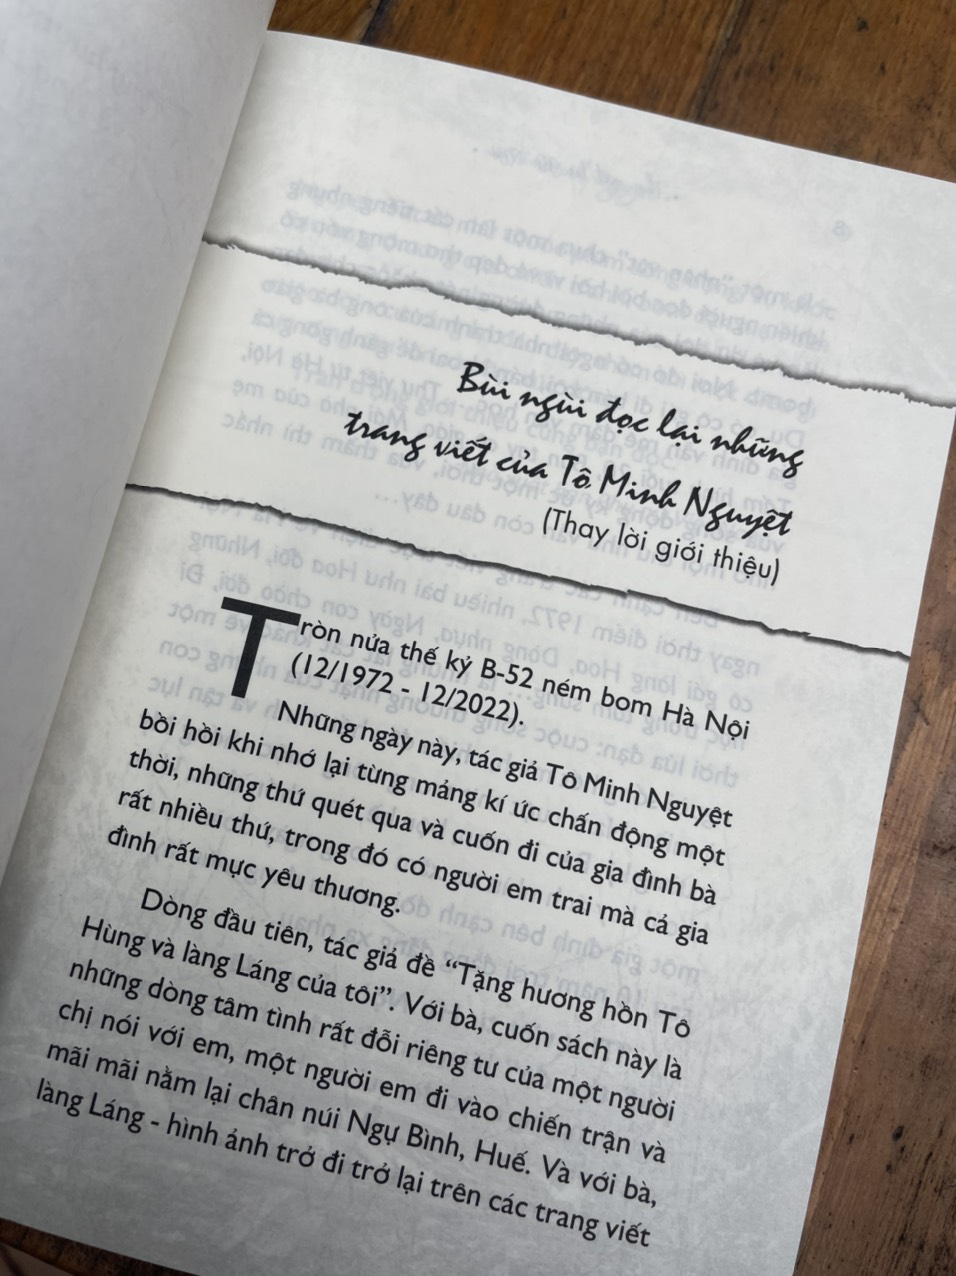 Bùi ngùi đọc lại những
trang viết của Tô Minh Nguyệt
(Thay lời giới thiệu)
Tròn nửa thế kỷ B-52 ném bom Hà Nội
(12/1972 - 12/2022).
Những ngày này, tác giả Tô Minh Nguyệt
bồi hồi khi nhớ lại từng mảng kí ức chấn động một
thời, những thứ quét qua và cuốn đi của gia đình bà
rất nhiều thứ, trong đó có người em trai mà cả gia
đình rất mực yêu thương.
Dòng đầu tiên, tác giả đề “Tặng hương hồn Tô
Hùng và làng Láng của tôi”. Với bà, cuốn sách này là
những dòng tâm tình rất đỗi riêng tư của một người
chị nói với em, một người em đi vào chiến trận và
mãi mãi nằm lại chân núi Ngự Bình, Huế. Và với bà,
làng Láng - hình ảnh trở đi trở lại trên các trang viết